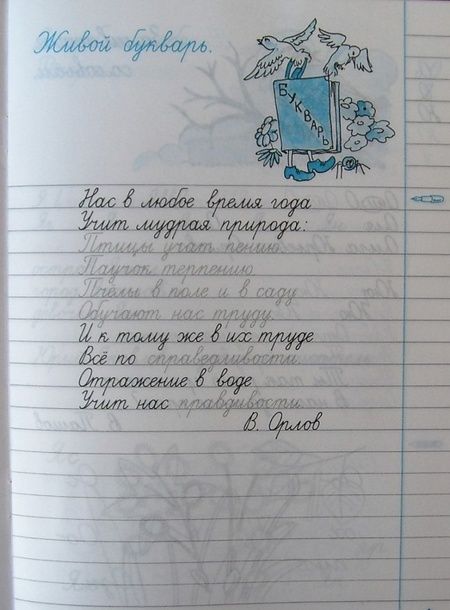 Живой букварь.
БУКВАРЬ
Нас в любое время года
Учит мудрая природа:
Птицы учат пению.
Паучок терпению.
Пчёлы в поле и в саду
Обучают нас труду.
И к тому же в их труде
Всё по справедливости.
Отражение в воде
Учит нас правдивости.
В. Орлов